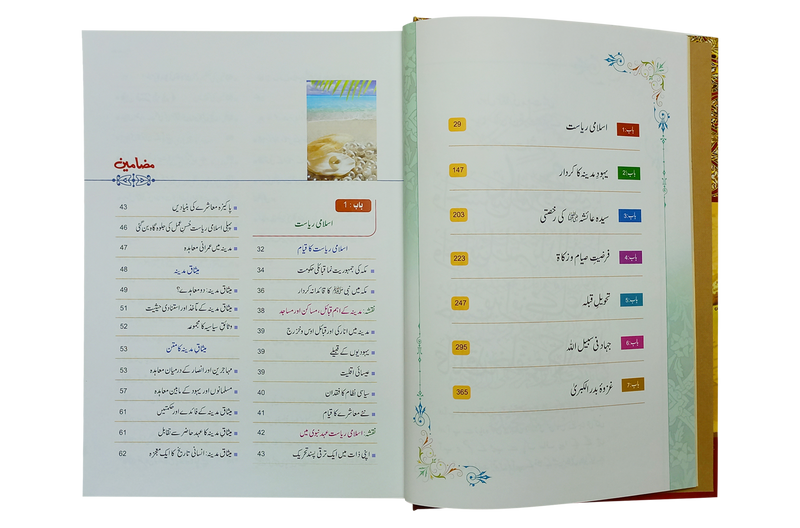 باب: 1
اسلامی ریاست 29
باب: 2
یہود مدینہ کا کردار 147
باب: 3
سیدہ عائشہ ﷞ کی رخصتی 203
باب: 4
فرضیتِ صیام و زکاۃ 223
باب: 5
تحویلِ قبلہ 247
باب: 6
جہاد فی سبیل اللہ 295
باب: 7
غزوۂ بدر الکبریٰ 365
مضامین
باب: 1
اسلامی ریاست
اسلامی ریاست کا قیام 32
مکہ کی جمہوریت نما قبائلی حکومت 34
مکہ میں نبی ﷺ کا قائدانہ کردار 36
نقشہ: مدینہ کے اہم قبائل، مساکن اور مساجد 38
مدینہ میں انارکی اور قبائل اوس و خزرج 39
یہودیوں کے قبیلے 39
عیسائی اقلیت 39
سیاسی نظام کا فقدان 40
نئے معاشرے کا قیام 41
نقشہ: اسلامی ریاست عہد نبوی میں 42
اپنی ذات میں ایک ترقی پسند تحریک 43
پاکیزہ معاشرے کی بنیادیں 43
پہلی اسلامی ریاست حُسنِ عمل کی جلوہ گاہ بن گئی 46
مدینہ میں عمرانی معاہدہ 47
میثاقِ مدینہ 48
میثاقِ مدینہ: دو معاہدے؟ 49
میثاقِ مدینہ کے مآخذ اور استنادی حیثیت 51
وثائقِ سیاسیہ کا مجموعہ 52
میثاقِ مدینہ کا متن 53
مہاجرین اور انصار کے درمیان معاہدہ 53
مسلمانوں اور یہود کے مابین معاہدہ 57
میثاقِ مدینہ کے فائدے اور حکمتیں 61
میثاقِ مدینہ کا عہدِ حاضر سے تقابل 61
میثاقِ مدینہ: انسانی تاریخ کا ایک معجزہ 62